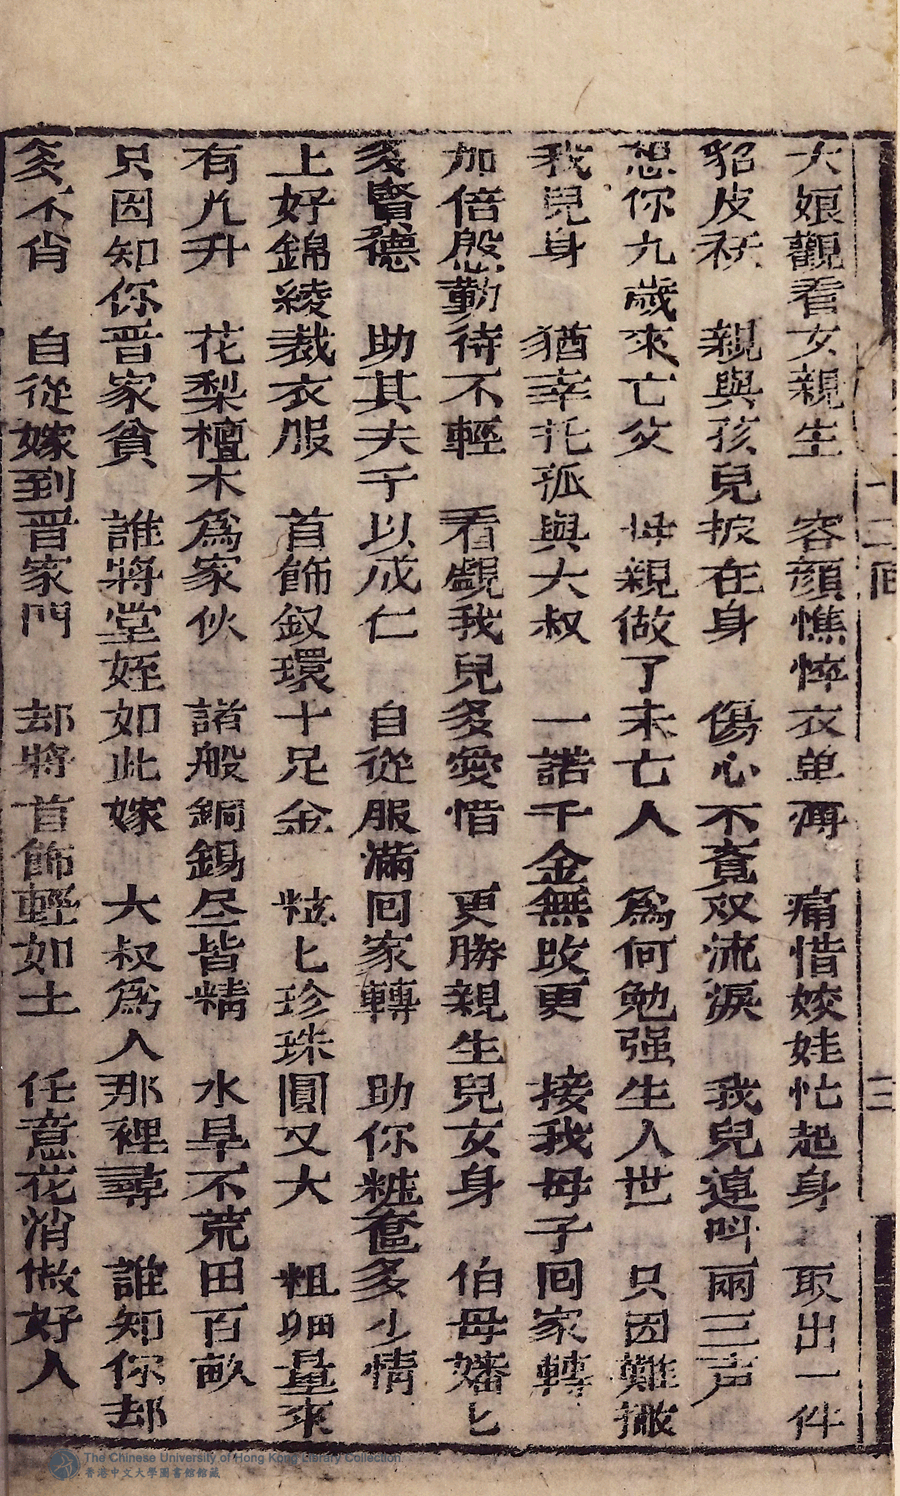 大娘觀看女親生 容顏憔悴衣单薄 痛惜姣娃忙起身 取出一件
貂皮袄 親與孩兒披在身 傷心不覓双流淚 我兒連叫兩三声
想你九歲來亡父 母親做了未亡人 為何勉强生人世 只因難撇
我兒身 猶幸托孤與大叔 一諾千金無改更 接我母子囘家轉
加倍慇勤待不輕 看覷我兒多愛惜 更勝親生兒女身 伯母嬸匕
多賢德 助其夫子以成仁 自從服滿囘家轉 助你粧奩多少情
上好錦綾裁衣服 首飾釵環十足金 粒匕珍珠圓又大 粗細量來
有九升 花梨檀木為家伙 諸般銅錫尽皆精 水旱不荒田百畝
只因知你晋家貧 誰將堂姪如此嫁 大叔為人那裡尋 誰知你却
多不肖 自從嫁到晋家門 却將首飾輕如土 任意花消做好人
十二回
三
The Chinese University of Hong Kong Library Collection
香港中文大學圖書館館藏